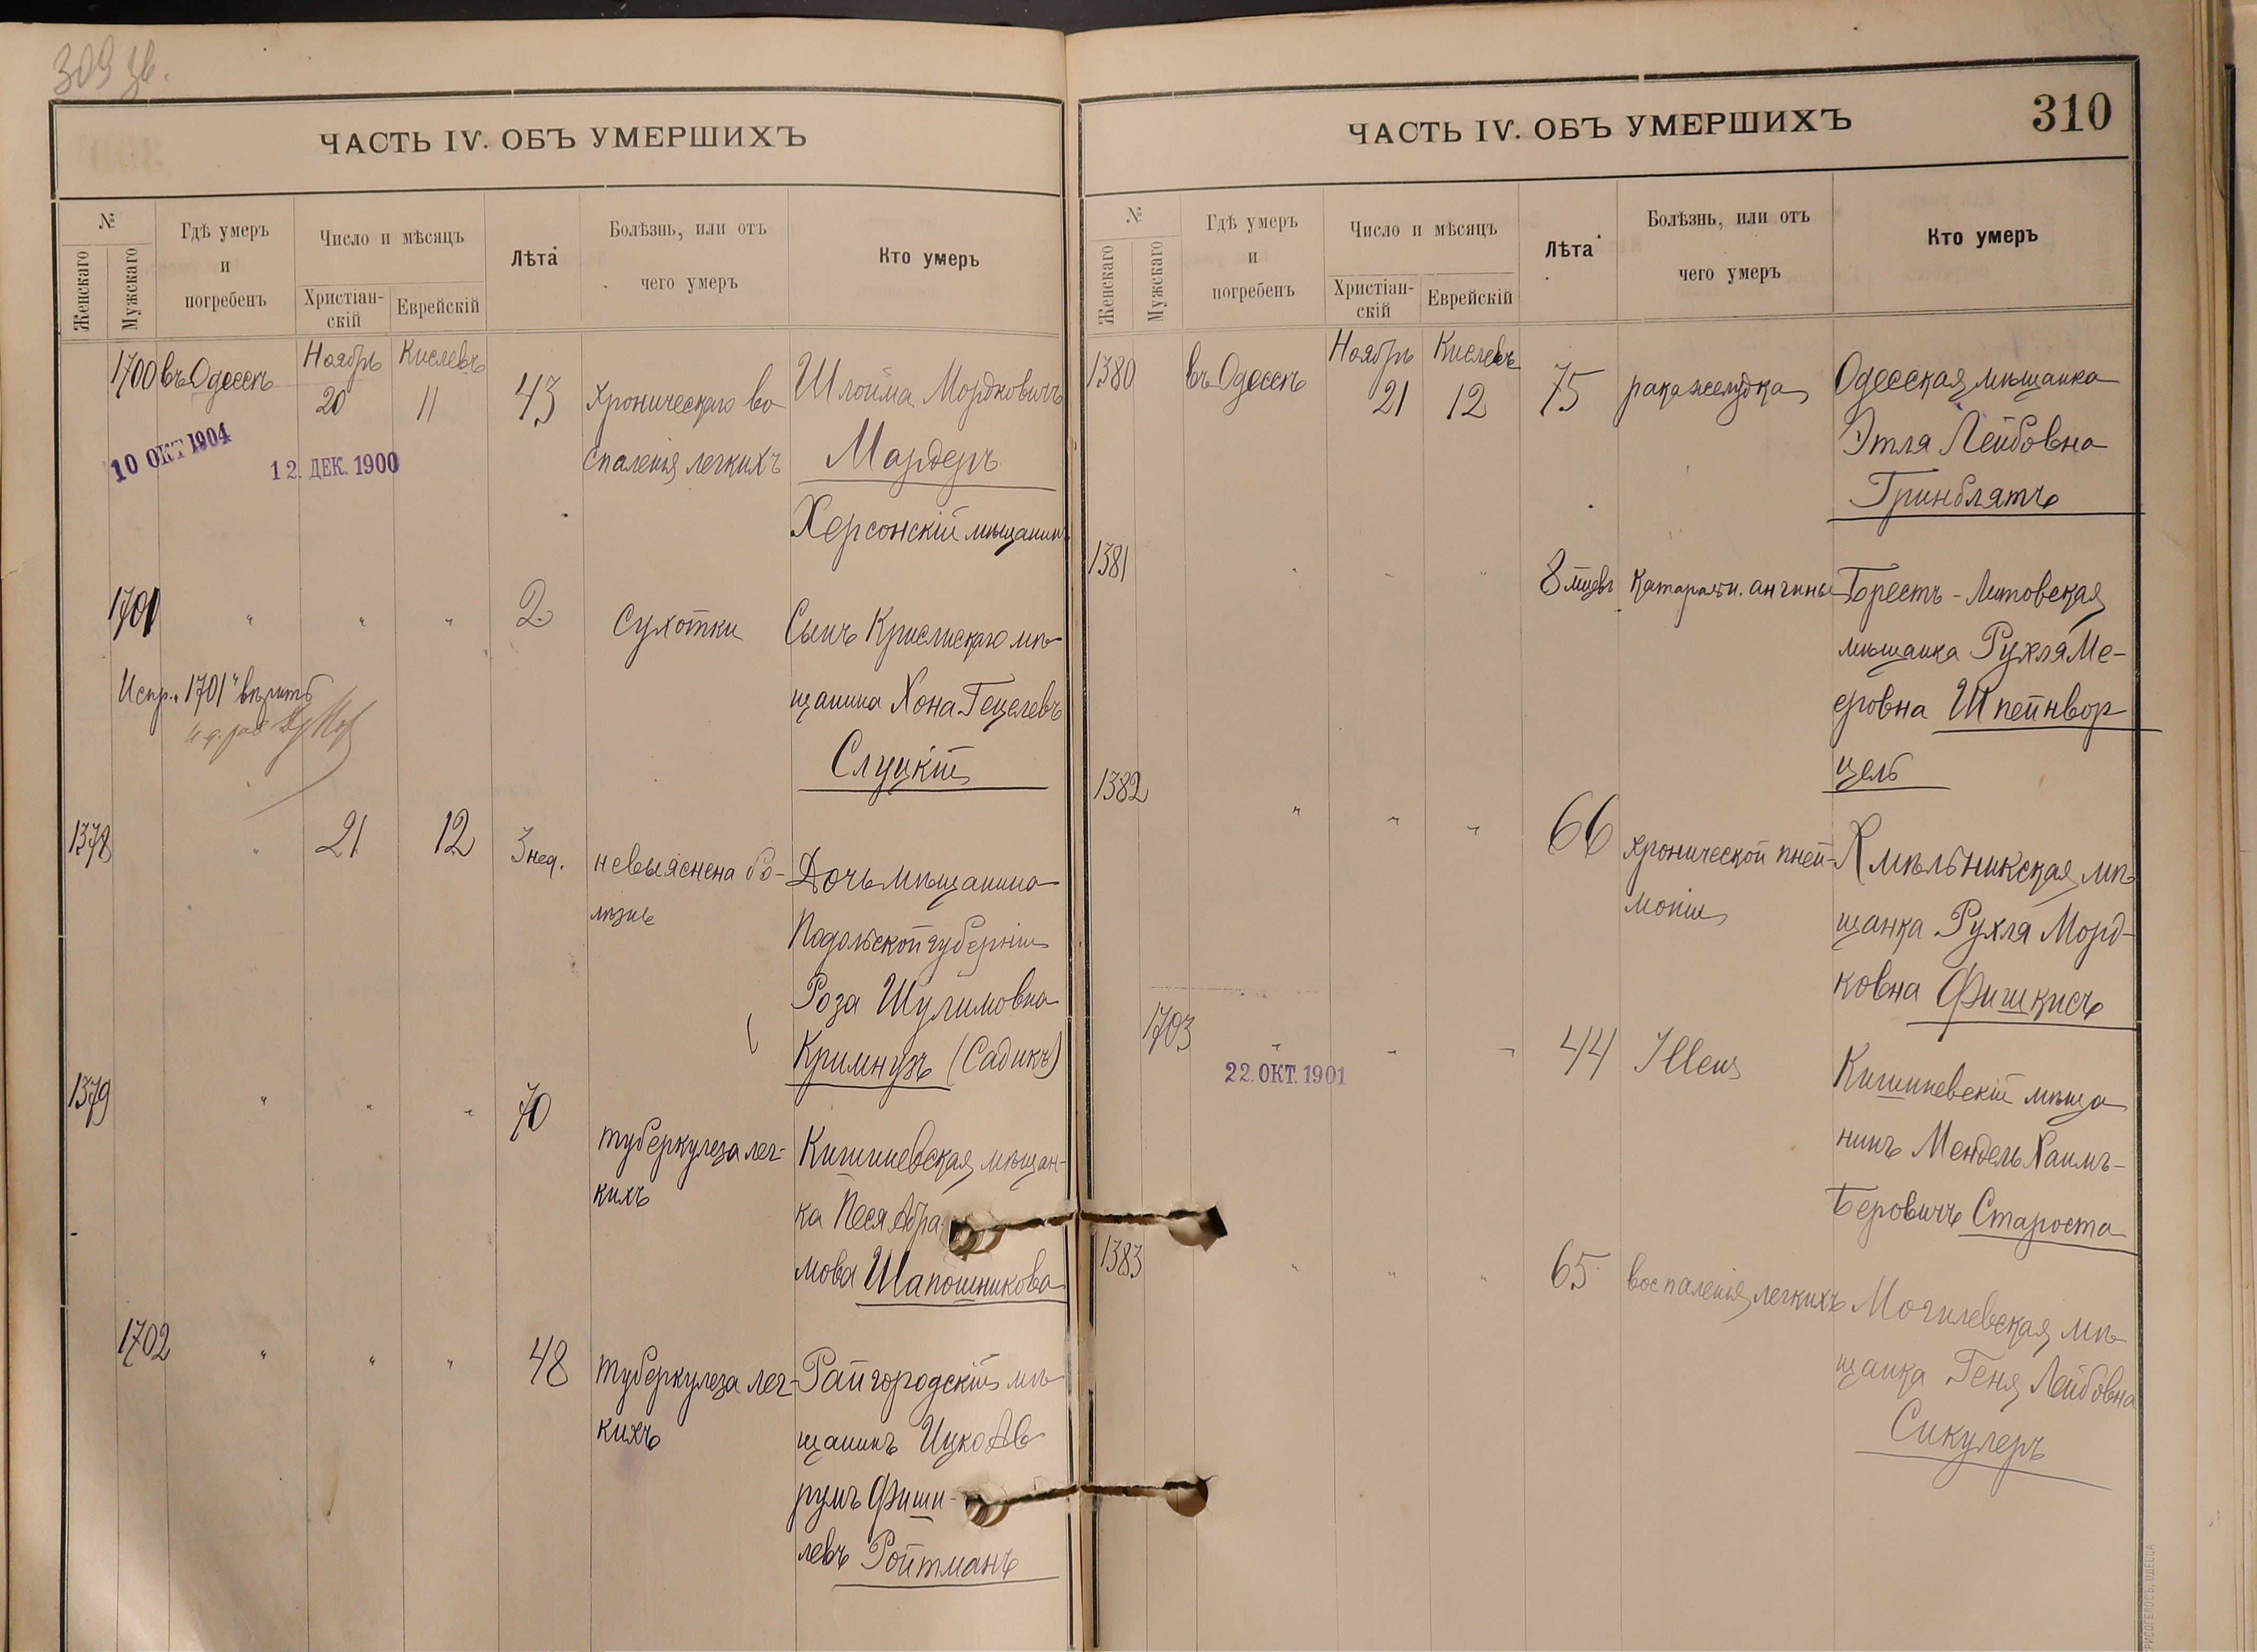 309 зв.
ЧАСТЬ IV. ОБЪ УМЕРШИХЪ
№
Женскаго
Мужскаго
Гдѣ умеръ
и
погребенъ
Число и мѣсяцъ
Христіан-
скій
Еврейскій
Лѣта
Болѣзнь, или отъ
чего умеръ
Кто умеръ
1700 въ Одессѣ Ноябрь 20 Кислевъ 11 43
хроническаго во-
спаленія легкихъ
Шлойма Мордковичъ
Мардеръ
Херсонскій мѣщанинъ
10 ОКТ 1904
12. ДЕК. 1900
1701 " " " 2
Сухотки
Сынъ мѣ-
щанина Хона Гецелевъ
Слуцкій
Испр. "1701" вѣрить
1378 " 21 12 3 нед.
невыяснена бо-
лѣзнь
Дочь мѣщанина
Подольской губерніи
Роза Шулимовна
Кримнузъ (Садикъ)
1379 " " " 70
туберкулеза лег-
кихъ
Кишиневская мѣщан-
ка Песя Абра-
мова Шапошникова
1702 " " " 48
туберкулеза лег-
кихъ
Райгородскій мѣ-
щанинъ Ицко Ав-
румъ Фиши-
левъ Ройтманъ
ЧАСТЬ IV. ОБЪ УМЕРШИХЪ
310
№
Женскаго
Мужскаго
Гдѣ умеръ
и
погребенъ
Число и мѣсяцъ
Христіан-
скій
Еврейскій
Лѣта
Болѣзнь, или отъ
чего умеръ
Кто умеръ
1380 въ Одессѣ Ноябрь 21 Кислевъ 12 75
рака желудка
Одесская мѣщанка
Этля Лейбовна
Гринблятъ
1381 " " " 8 мцевъ
Катаральн. ангины
Брестъ-Литовская
мѣщанка Рухля Ме-
еровна Шпейнвор-
цель
1382 " " " 66
хронической пней-
моніи
Хмѣльникская мѣ-
щанка Рухля Морд-
ковна Фишкисъ
1703 " " " 44
Illeus
22. ОКТ. 1901
Кишиневскій мѣща-
нинъ Мендель Хаимъ-
Беровичъ Староста
1383 " " " 65
воспаленія легкихъ
Могилевская мѣ-
щанка Геня Лейбовна
Сикулеръ